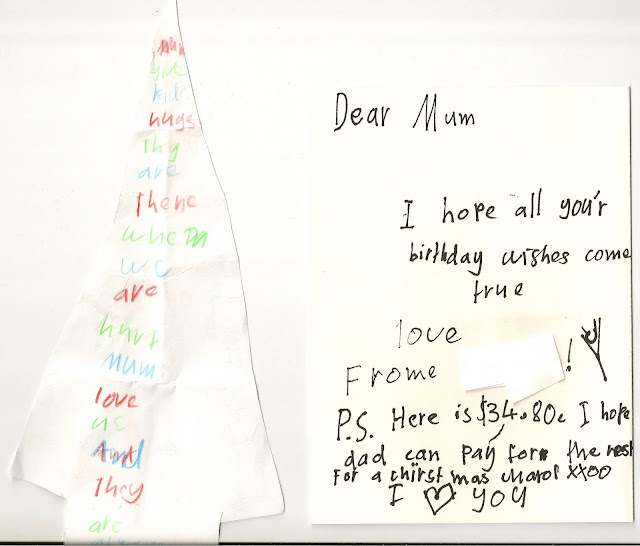 give
kids
hugs
Thy
are
there
when
we
are
hurt
mum
love
us
And
They
are
Dear Mum
I hope all you'r
birthday wishes come
true
love
Frome
!
P.S. Here is $34.80c I hope
dad can pay for the rest
For a christmas xx00
I ♡ you